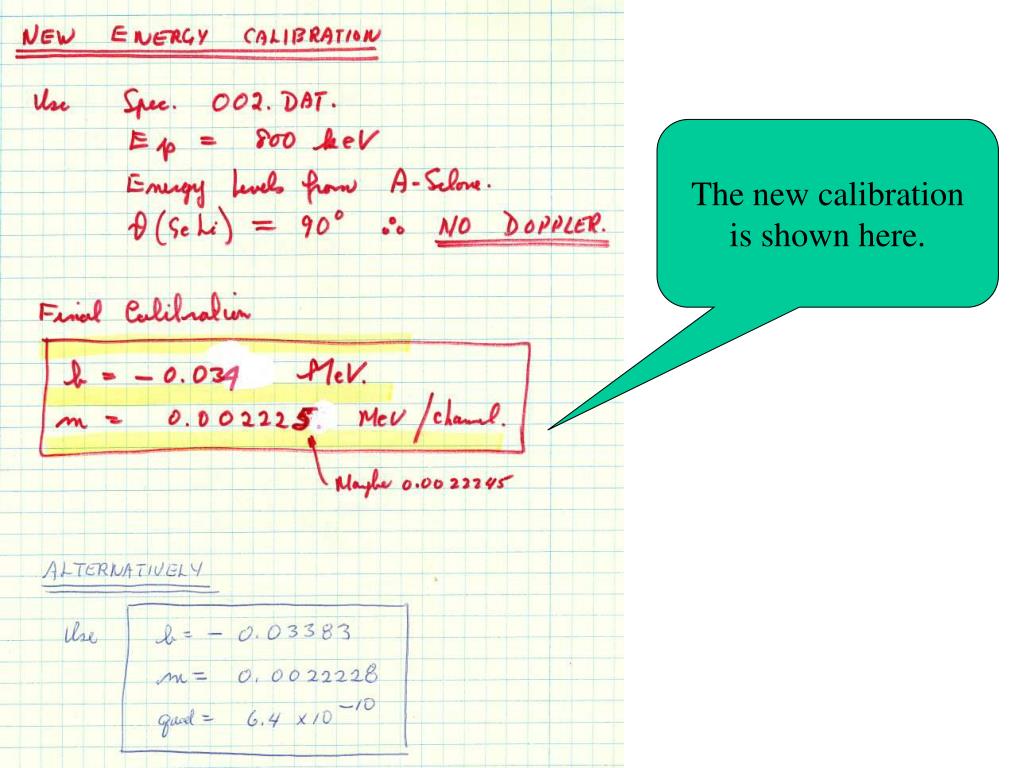 NEW ENERGY CALIBRATION
Use Spec. 002.DAT.
Ep = 800 keV
Energy Levels from A-Selove.
θ(GeLi) = 90° ∴ NO DOPPLER.
Final Calibration
b = -0.034 MeV.
m = 0.002225 MeV/channel.
Maybe 0.0022245
ALTERNATIVELY
Use b = - 0.03383
m = 0.0022228
quad = 6.4 x 10⁻¹⁰
The new calibration
is shown here.